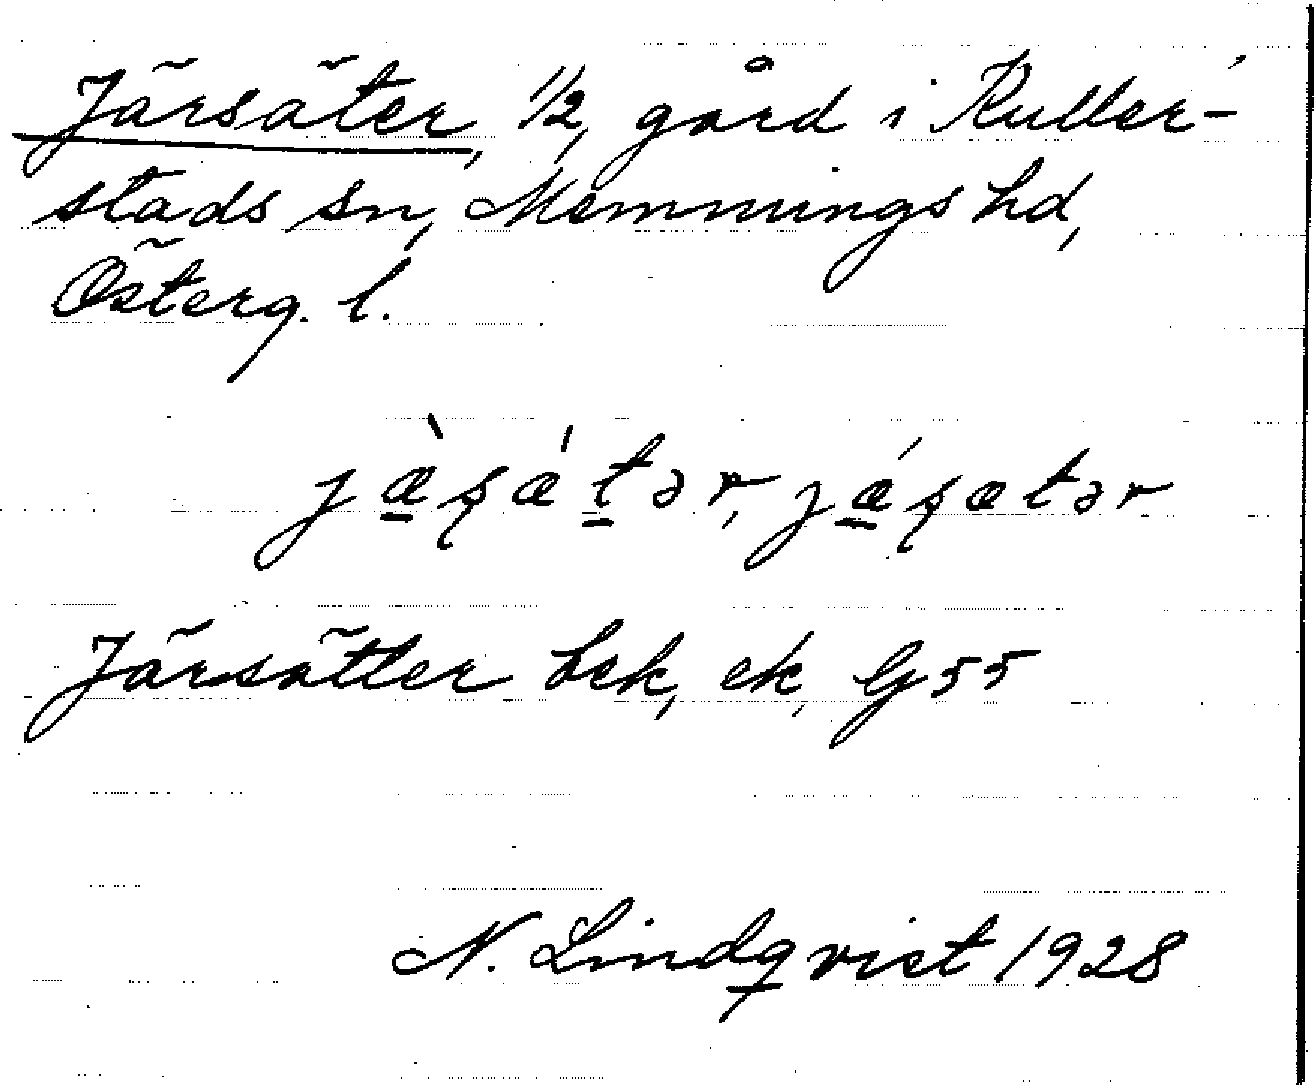 Järsäter, 1/2, gård i Kuller-
stads sn, Memmings hd,
Österg. l.
jæ̀ʂǽtər, jǽʂætər
Järsätter bek, ek, G 55
N. Lindqvist 1928